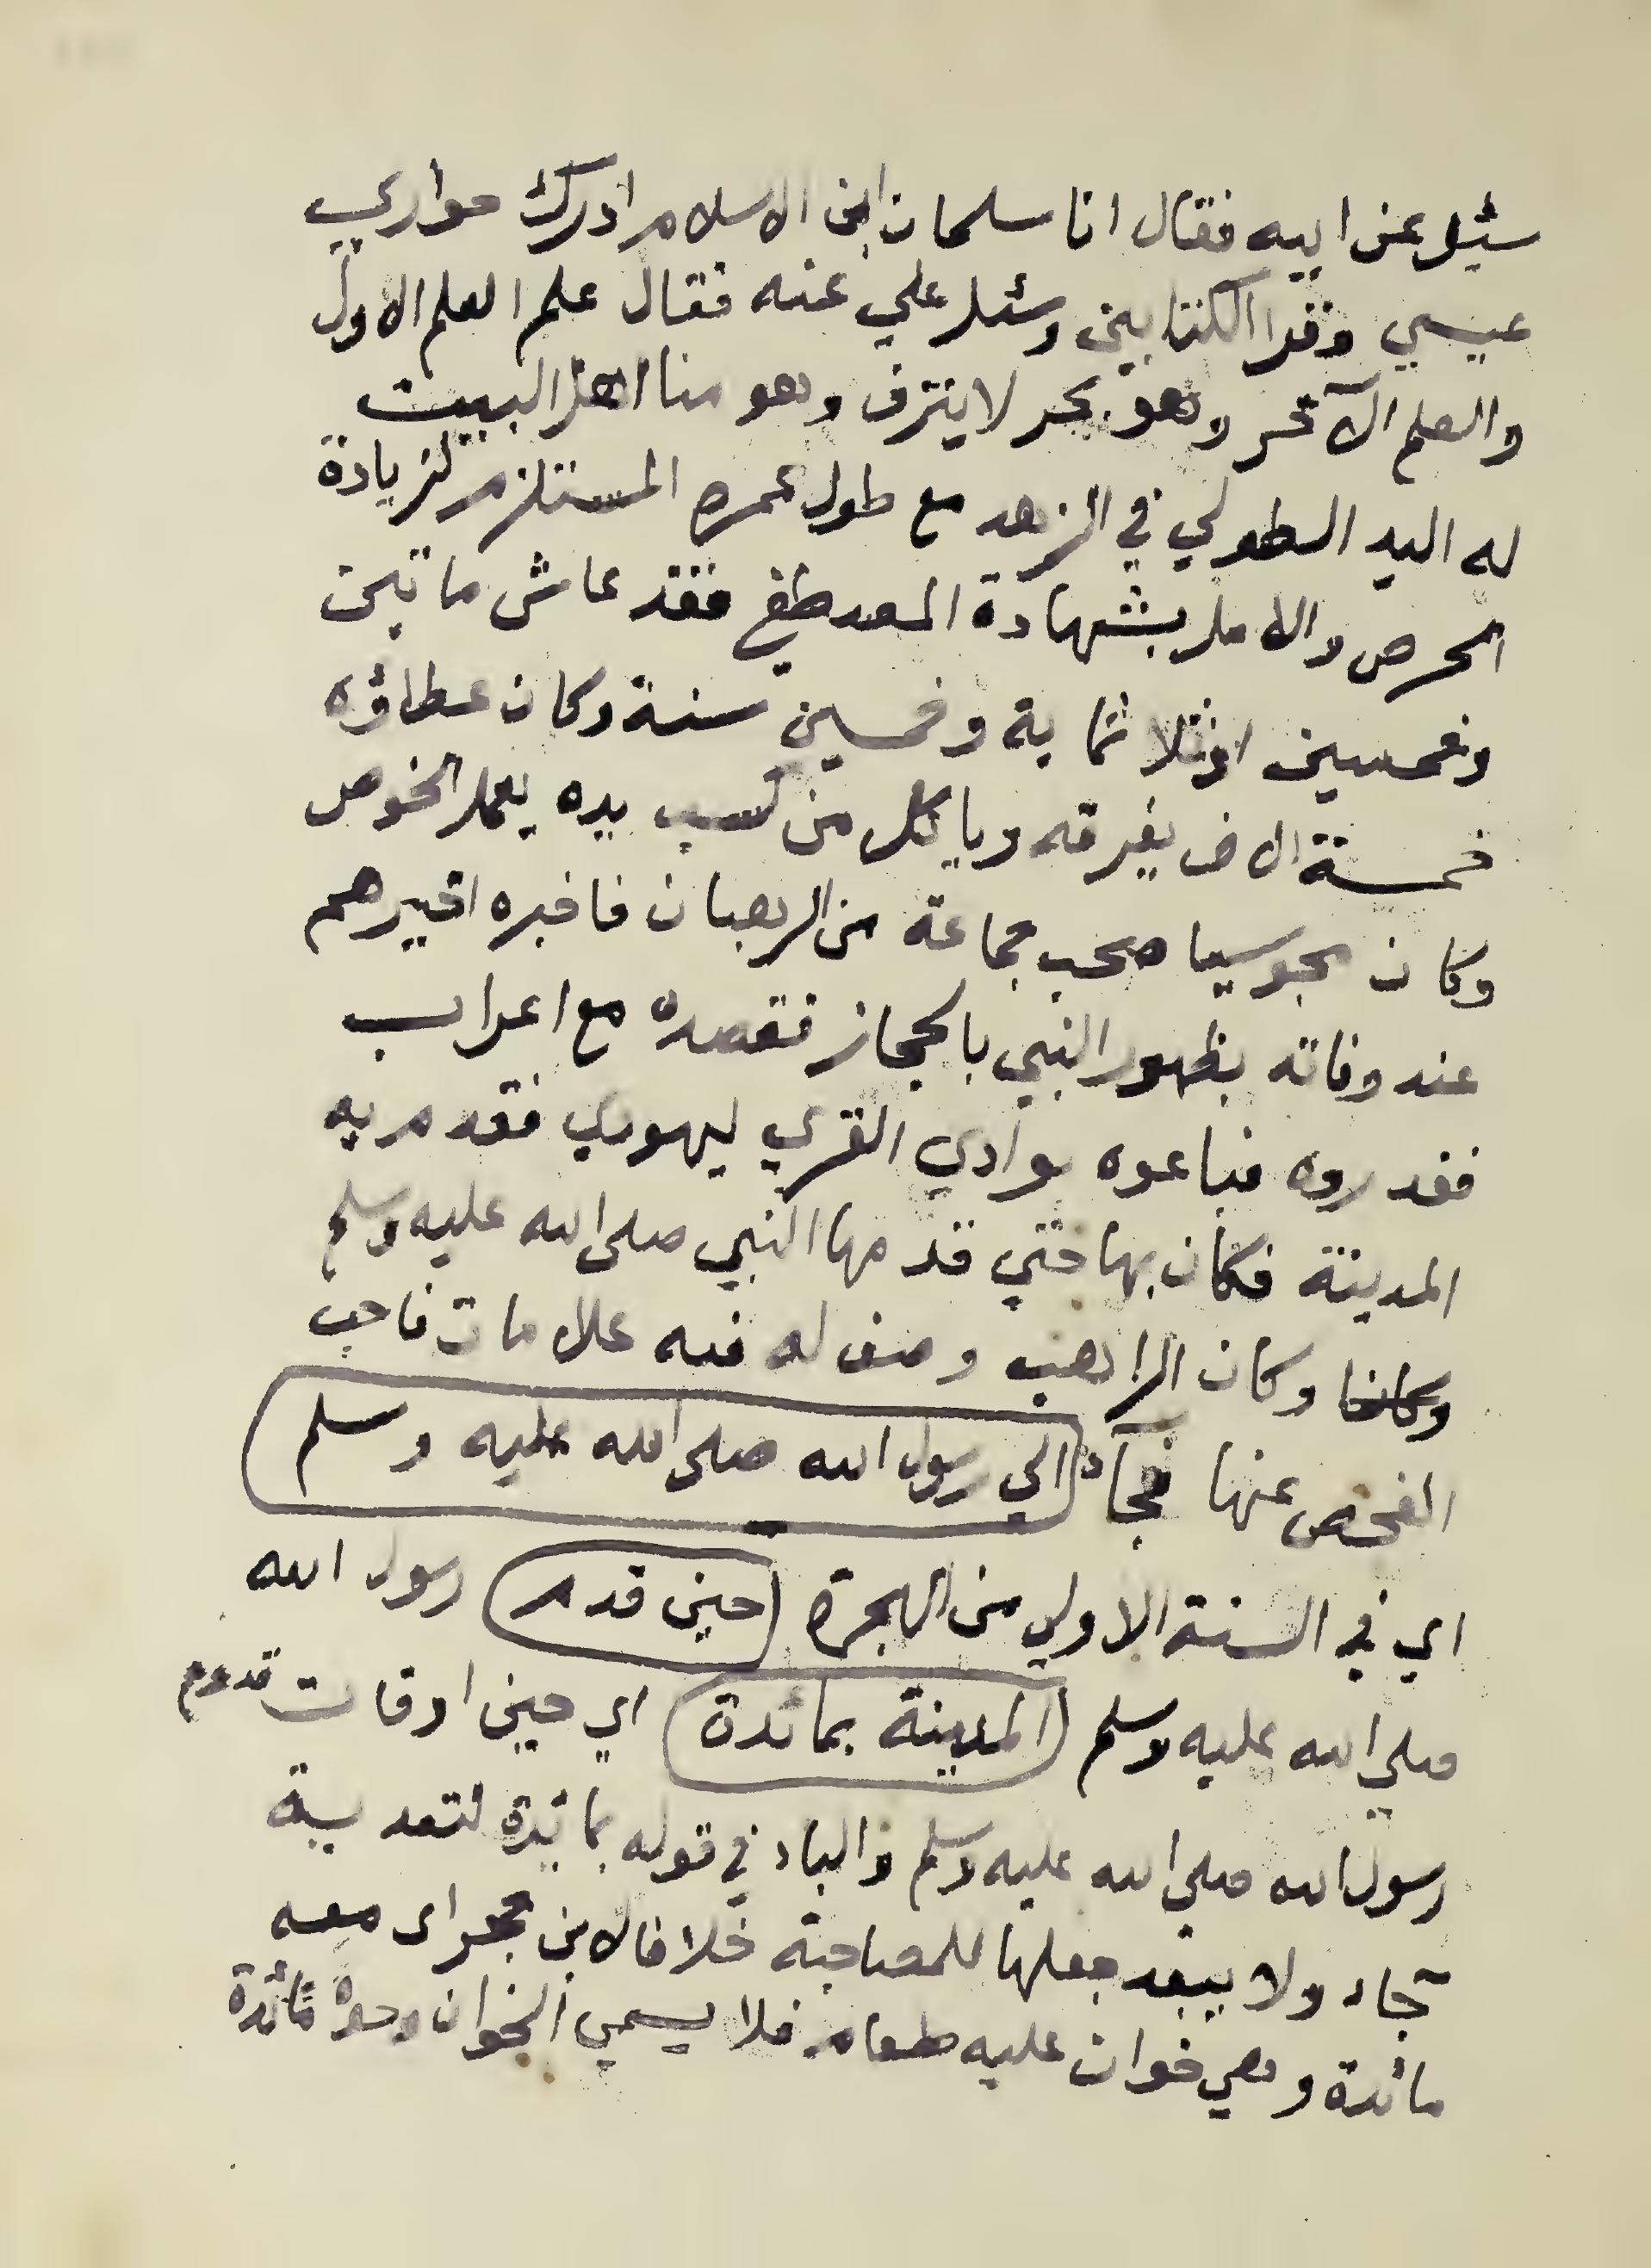 سئل عن ابيه فقال انا سلمان ابن الاسلام ادرك حواري
عيسي وقرا الكتابين وسئل علي عنه فقال علم العلم الاول
والعلم الآخر وهو بحر لا ينزف وهو منا اهل البيت
له اليد الطولي في الزهد مع طول عمره المستلزم لزيادة
الحرص والامل بشهادة المصطفي فقد عاش ماتين
وخمسين اوثلاثماية وخمسين سنة وكان عطاؤه
خمسة الاف يفرقه وياكل من كسب يده يعمل الخوص
وكان مجوسيا صحب جماعة من الرهبان فاخبره اخيرهم
عند وفاته بظهور النبي بالحجاز فقصده مع اعراب
فغدروه فباعوه بوادي القري ليهودي فقدم به
المدينة فكان بها حتي قدمها النبي صلى الله عليه وسلم
وكان الراهب وصف له فيه علامات فاحب
الفحص عنها فجآء الي رسول الله صلى الله عليه وسلم
اي في السنة الاولي من الهجرة حين قدم رسول الله
صلي الله عليه وسلم المدينة بمائدة اي حين اوقات قدوم
رسول الله صلي الله عليه وسلم والباء في قوله بمائدة لتعدية
جاء ولا يبعد جعلها للمصاحبة خلافا لابن حجر اي معه
مائدة وهي خوان عليه طعام فلا يسمي الخوان وحده مائدة